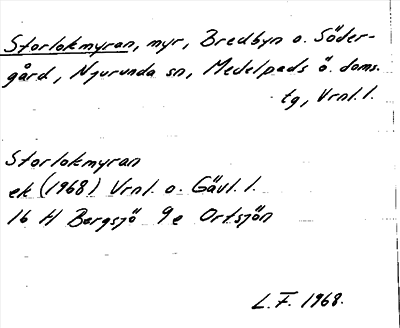 Storlokmyran, myr, Bredbyn o. Söder-
gård, Njurunda sn, Medelpads ö. doms.
tg, Vrnl. l.
Storlokmyran
ek (1968) Vrnl. o. Gävl. l.
16 H Bergsjö 9e Ortsjön
L.F. 1968.